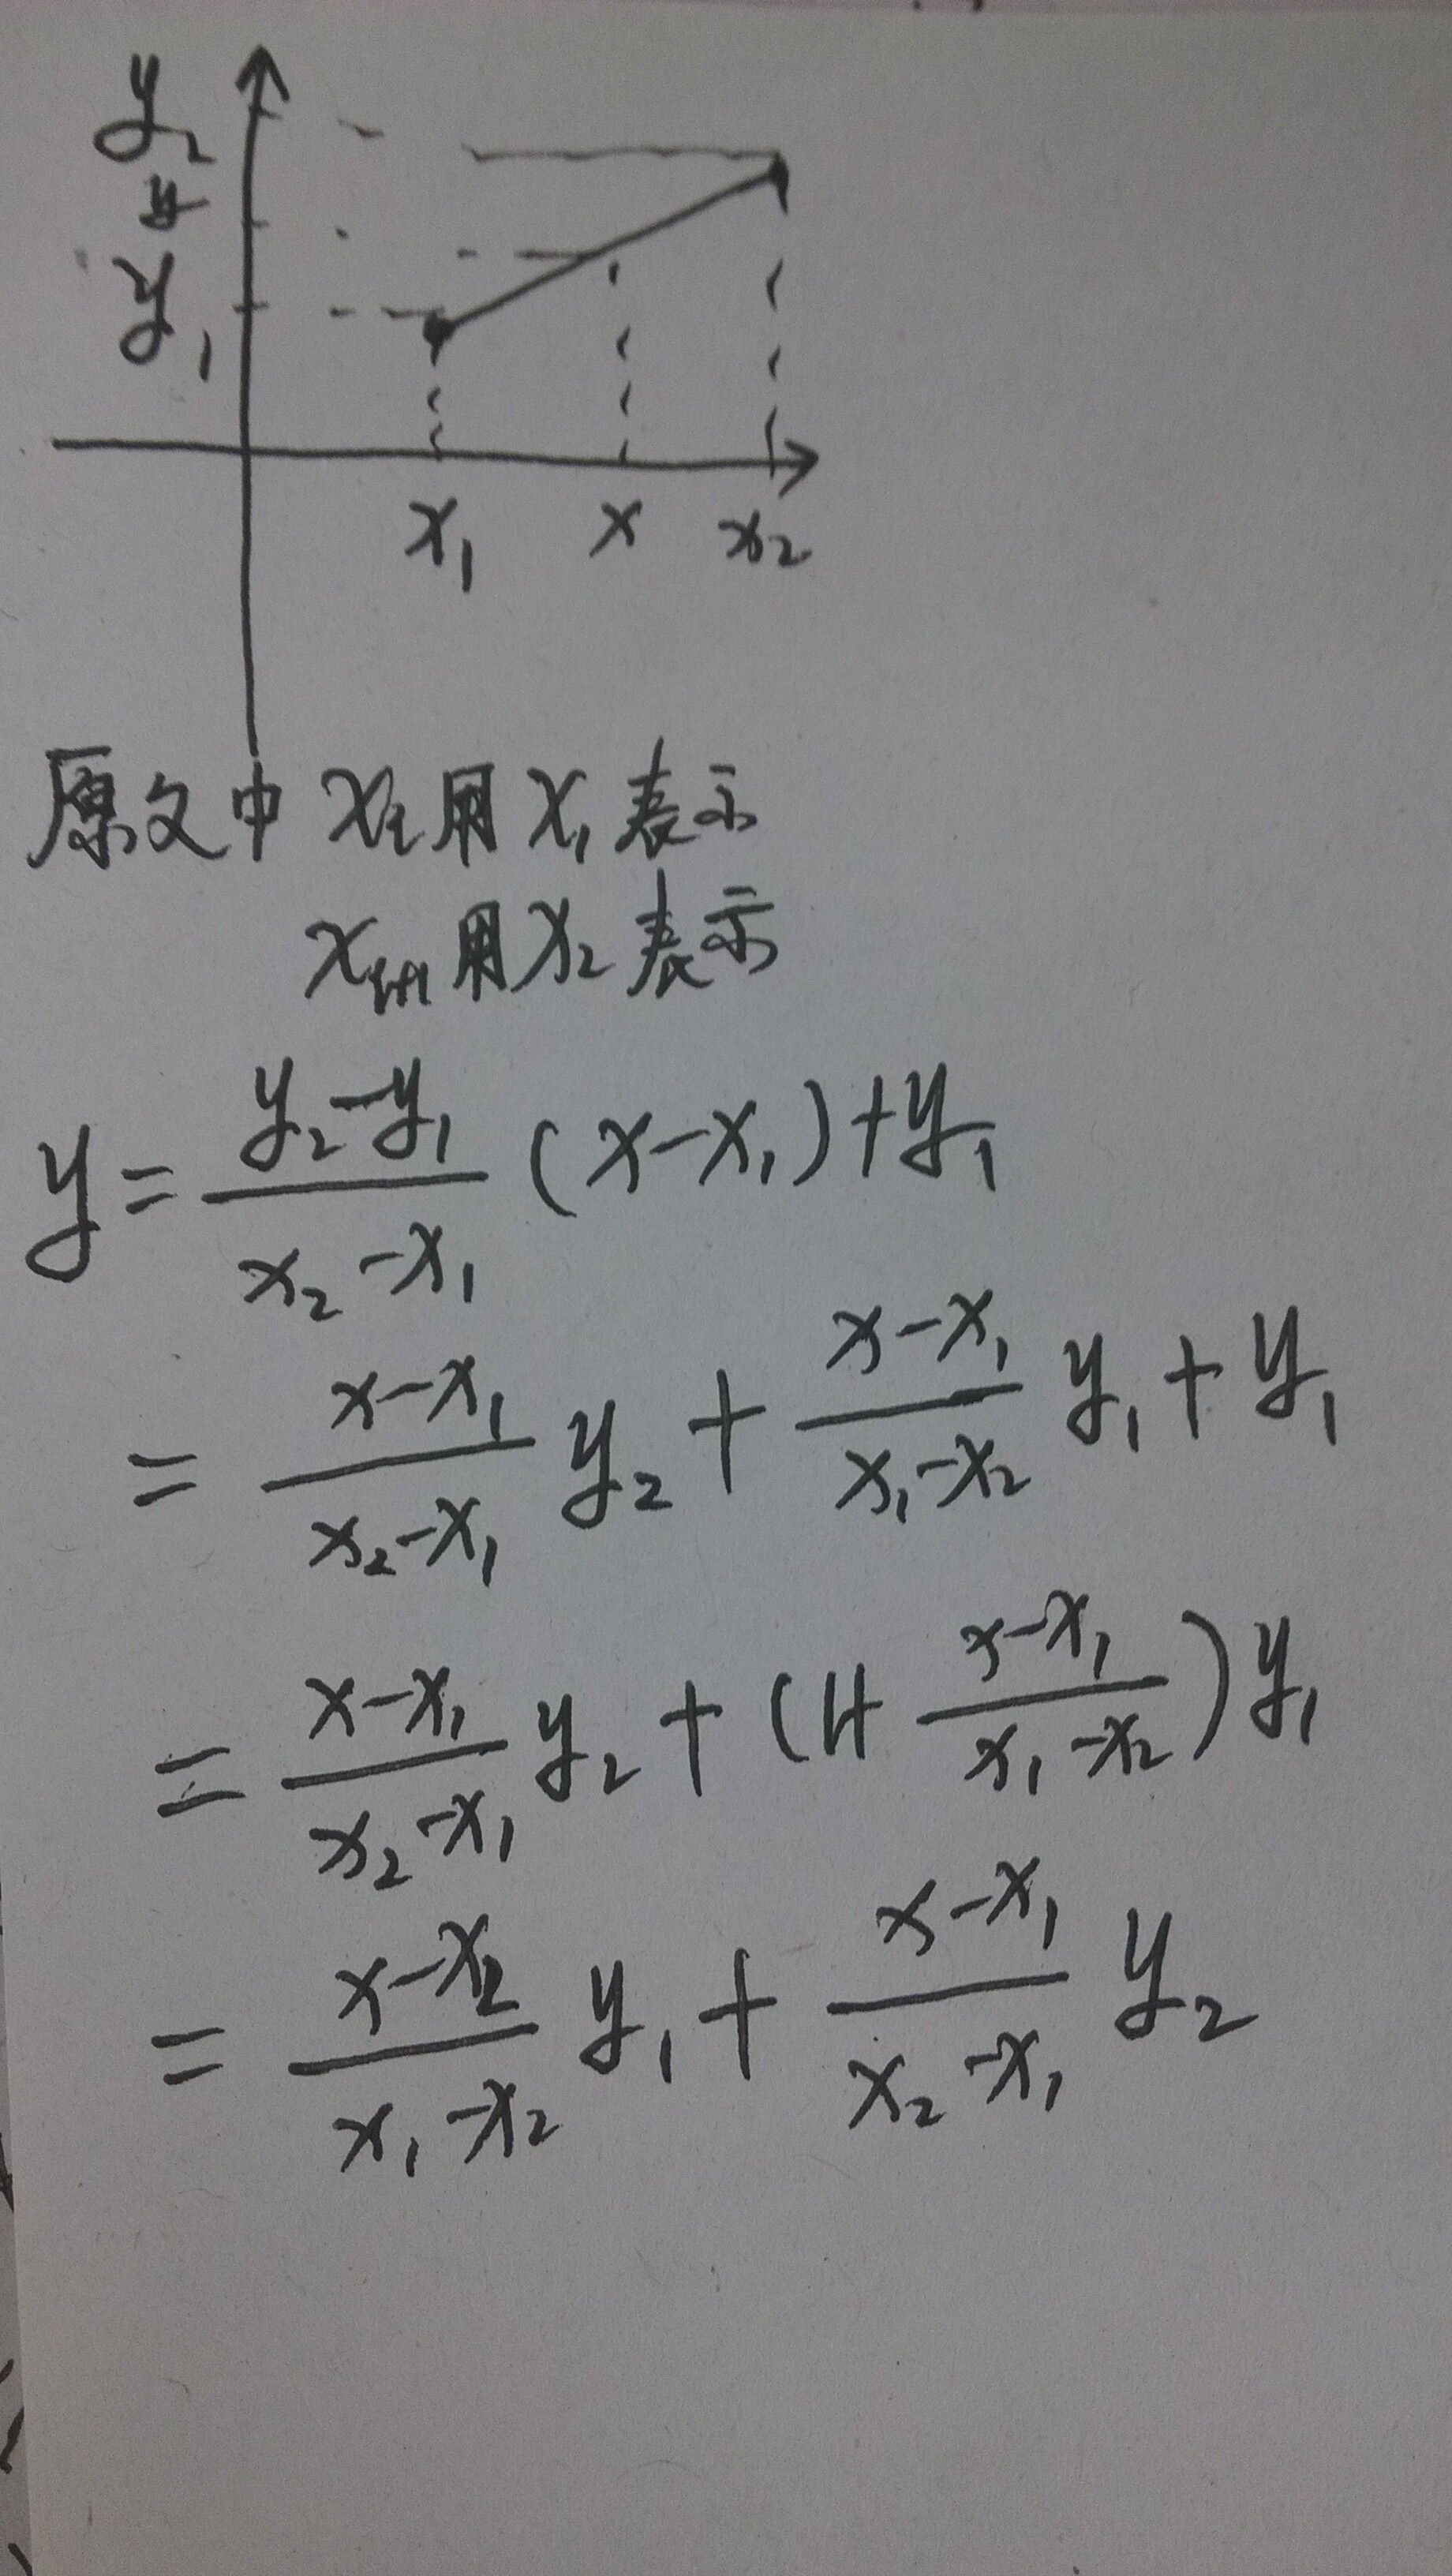 y₂
y
y₁
x₁ x x₂
原文中 xᵢ用x₁表示
xᵢ₊₁用x₂表示
y = (y₂-y₁)/(x₂-x₁) (x-x₁)+y₁
= (x-x₁)/(x₂-x₁) y₂ + (x-x₁)/(x₁-x₂) y₁ + y₁
= (x-x₁)/(x₂-x₁) y₂ + (1+ (x-x₁)/(x₁-x₂)) y₁
= (x-x₂)/(x₁-x₂) y₁ + (x-x₁)/(x₂-x₁) y₂